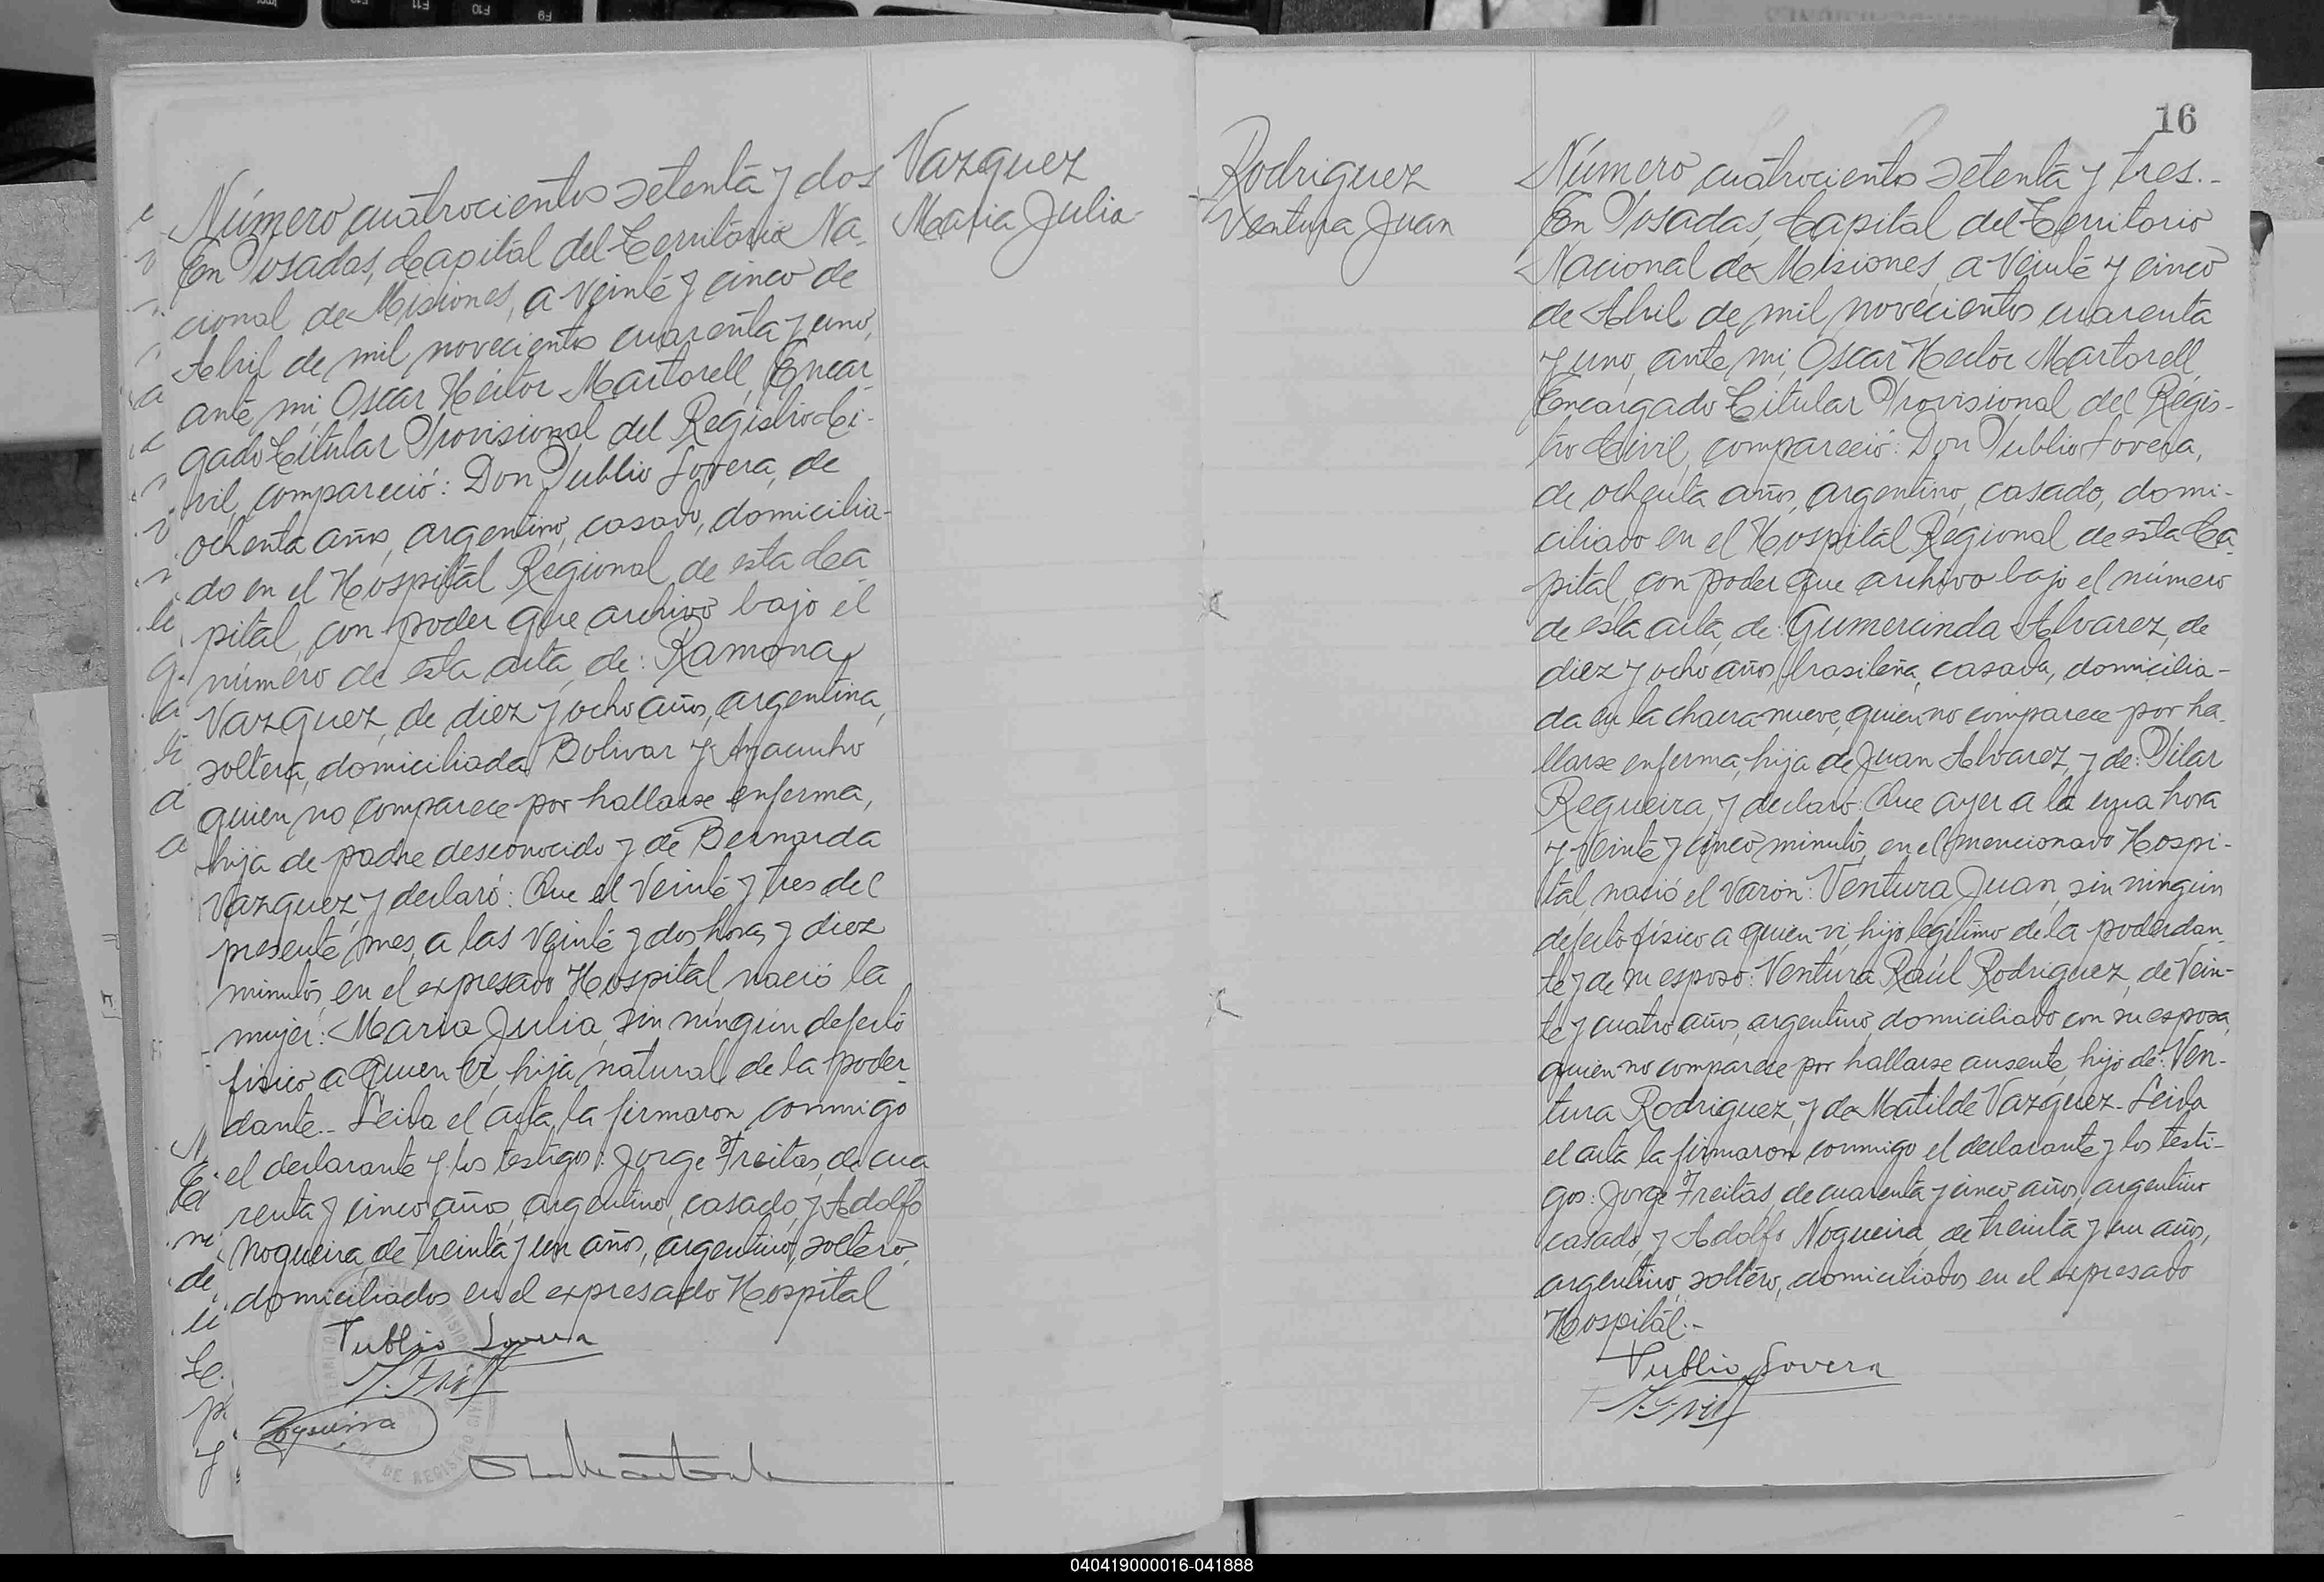 Vazquez
Maria Julia
Número cuatrocientos setenta y dos
En Posadas, Capital del Territorio Na-
cional de Misiones, a veinte y cinco de
Abril de mil novecientos cuarenta y uno,
ante mi Oscar Héctor Martorell, Encar-
gado Titular Provisional del Registro Ci-
vil, compareció: Don Publio Lovera, de
ochenta años, argentino, casado, domicilia-
do en el Hospital Regional de esta Ca
pital, con poder que archivo bajo el
número de esta acta, de: Ramona
Vazquez, de diez y ocho años, argentina,
soltera, domiciliada Bolivar y Ayacucho
quien no comparece por hallarse enferma,
hija de padre desconocido y de Bernarda
Vazquez, y declaró: Que el veinte y tres del
presente mes, a las veinte y dos horas y diez
minutos, en el expresado Hospital, nació la
mujer: Maria Julia, sin ningun defecto
fisico a quien vi, hija natural de la poder-
dante.- Leida el acta, la firmaron conmigo
el declarante y los testigos: Jorge Freitas, de cua
renta y cinco años, argentino, casado, y Adolfo
Nogueira de treinta y un años, argentino, soltero,
domiciliados en el expresado Hospital
Publio Lovera
16
Rodriguez
Ventura Juan
Número cuatrocientos setenta y tres.-
En Posadas, Capital del Territorio
Nacional de Misiones, a veinte y cinco
de Abril de mil novecientos cuarenta
y uno, ante mi, Oscar Hector Martorell,
Encargado Titular Provisional del Regis-
tro Civil, compareció: Don Publio Lovera,
de ochenta años, argentino, casado, domi-
ciliado en el Hospital Regional de esta Ca-
pital, con poder que archivo bajo el número
de esta acta, de: Gumercinda Alvarez, de
diez y ocho años, brasileña, casada, domicilia-
da en la chacra nueve, quien no comparece por ha-
llarse enferma, hija de Juan Alvarez, y de: Pilar
Regueira, y declaró: Que ayer a la una hora
y veinte y cinco minutos, en el mencionado Hospi-
tal, nació el varón: Ventura Juan, sin ningún
defecto físico a quien vi, hijo legítimo de la poderdan-
te y de su esposo: Ventura Raúl Rodriguez, de vein-
te y cuatro años, argentino, domiciliado con su esposa,
quien no comparece por hallarse ausente, hijo de: Ven-
tura Rodriguez, y de Matilde Vazquez.- Leida
el acta la firmaron conmigo el declarante y los testi-
gos: Jorge Freitas, de cuarenta y cinco años, argentino
casado, y Adolfo Nogueira, de treinta y un años,
argentino, soltero, domiciliados en el expresado
Hospital.-
Publio Lovera
040419000016-041888